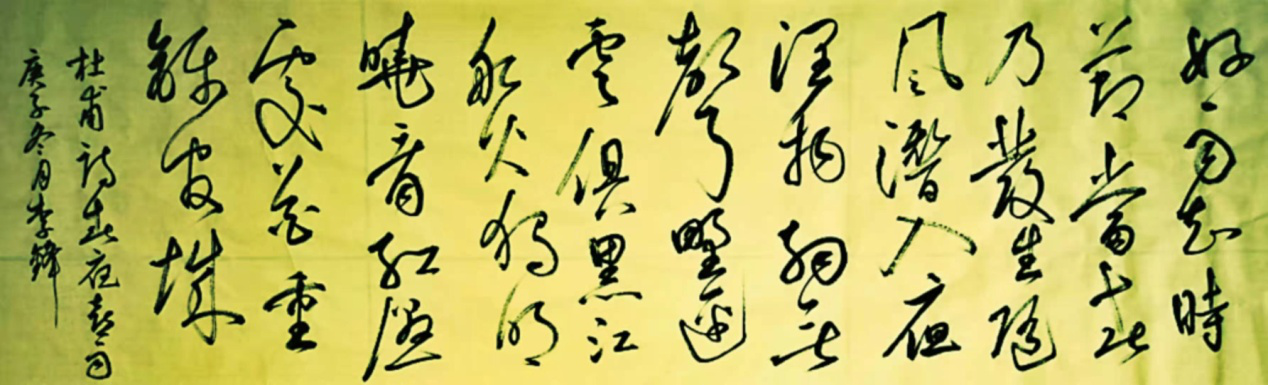 好雨知時
節當春
乃發生隨
風潛入夜
潤物細無
聲野徑
雲俱黑江
船火獨明
曉看紅濕
處花重
錦官城
杜甫詩春夜喜雨
庚子冬月李鋒